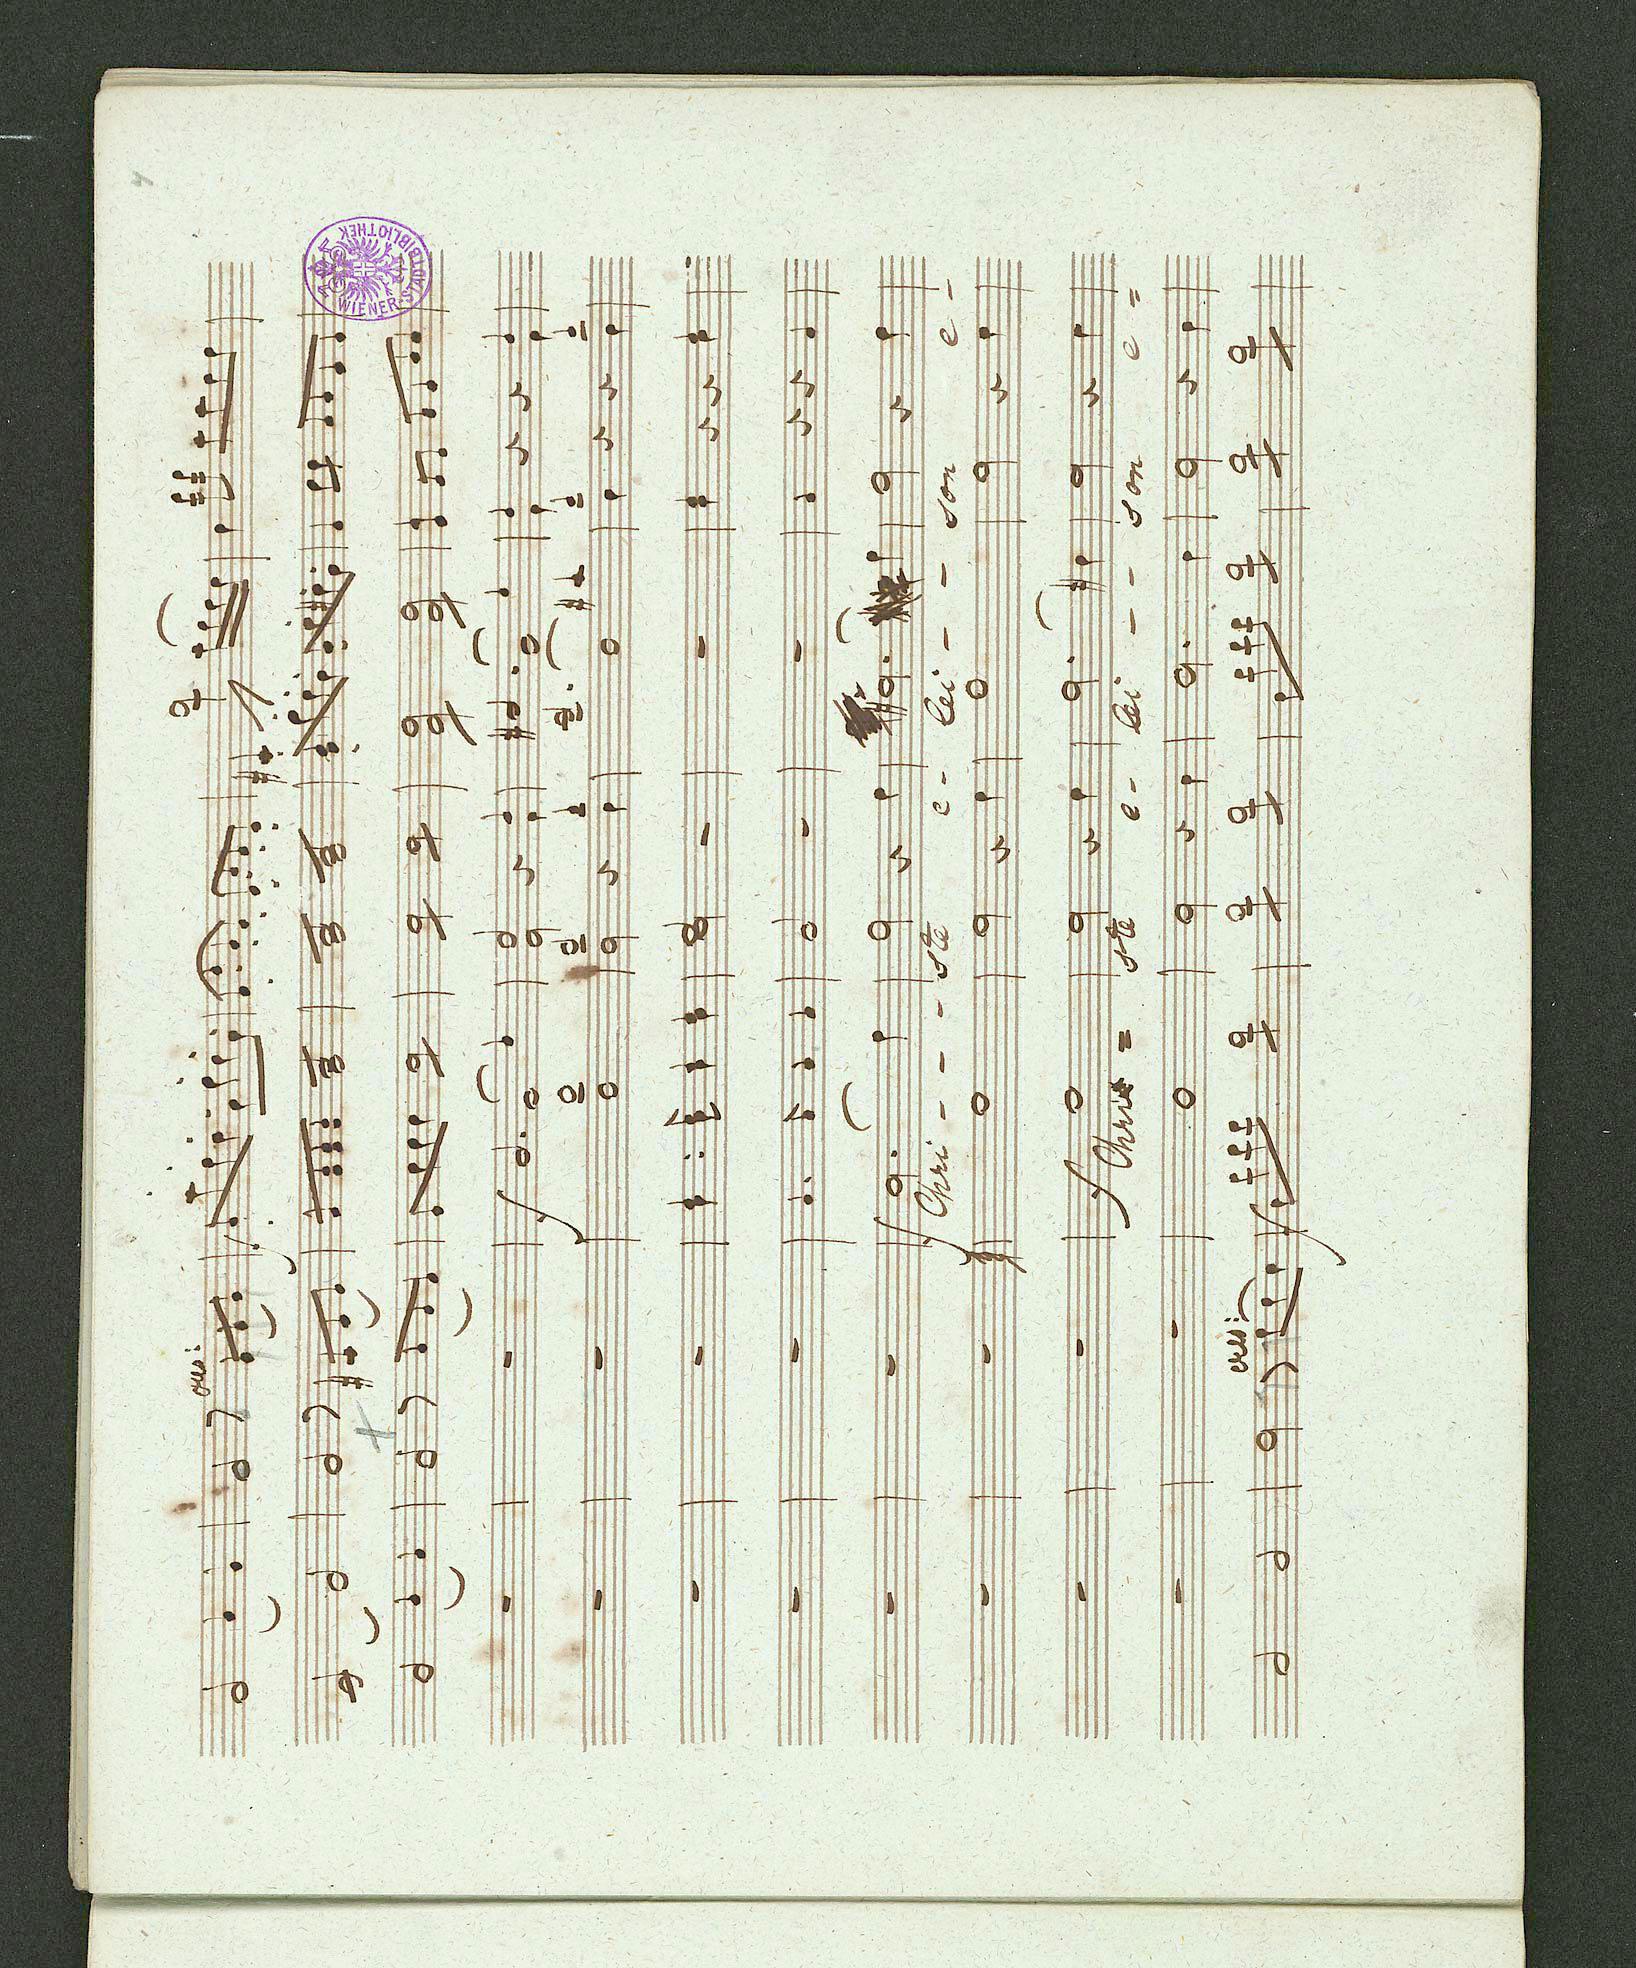 WIENER STADTBIBLIOTHEK
cresc:
f
f
Chri - - - - ste e - lei - - - son e -
f
Chri = ste e - lei - - - son e =
cresc:
f